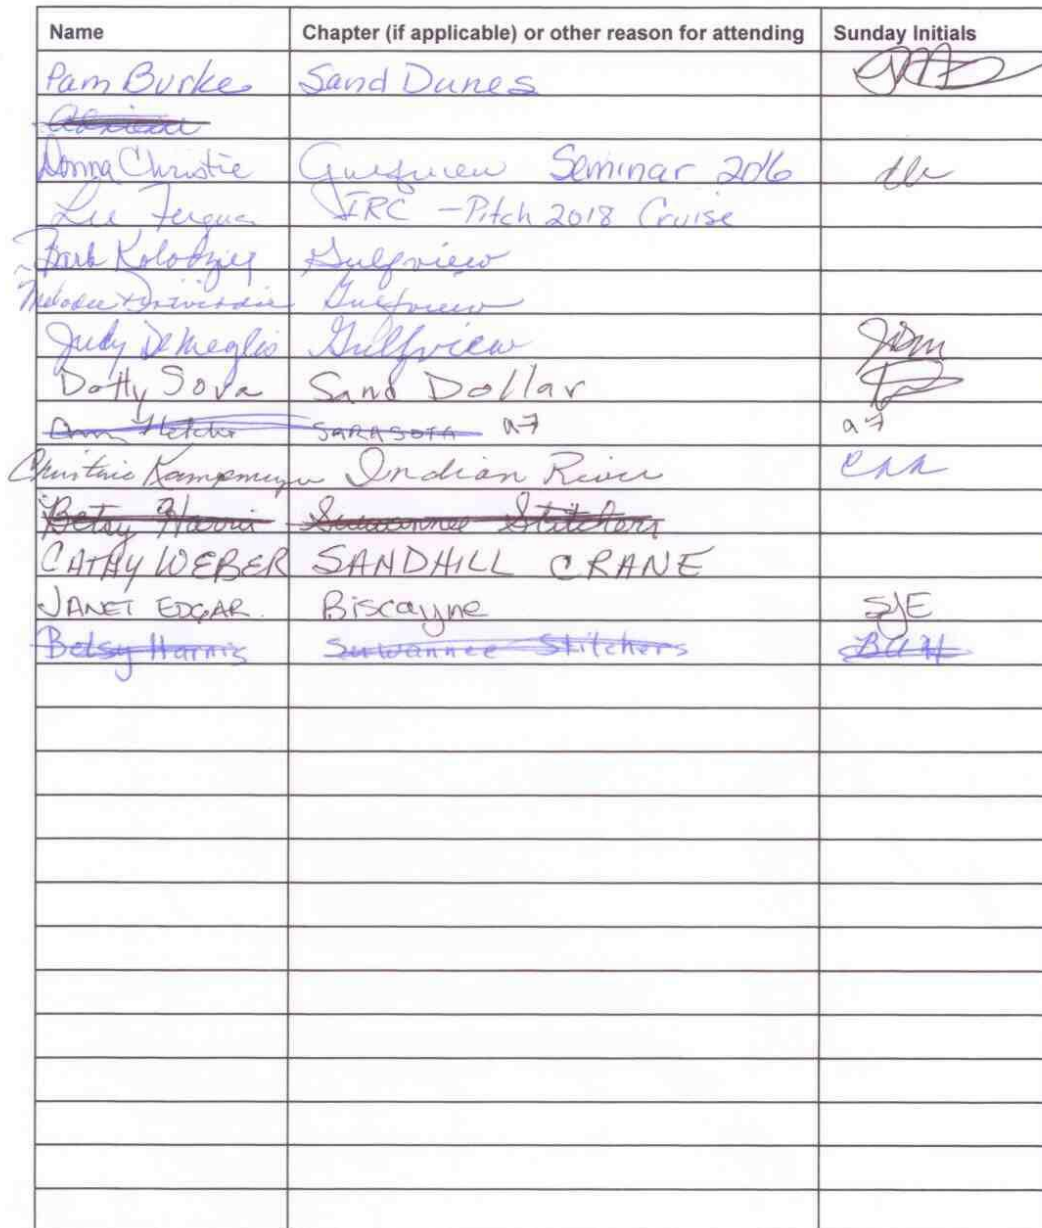 Name Chapter (if applicable) or other reason for attending Sunday Initials
Pam Burke Sand Dunes
Donna Christie Gulfview Seminar 2016
Lee IRC - Pitch 2018 Cruise
Barb Gulfview
Gulfview
Judy DeMeglio Gulfview JDM
Dotty Sova Sand Dollar
Ann Fletcher SARASOTA af af
Christine Indian River
Betsy Harris Suwannee Stitchers
CATHY WEBER SANDHILL CRANE
JANET EDGAR. Biscayne SJE
Betsy Harris Suwannee Stitchers BAH